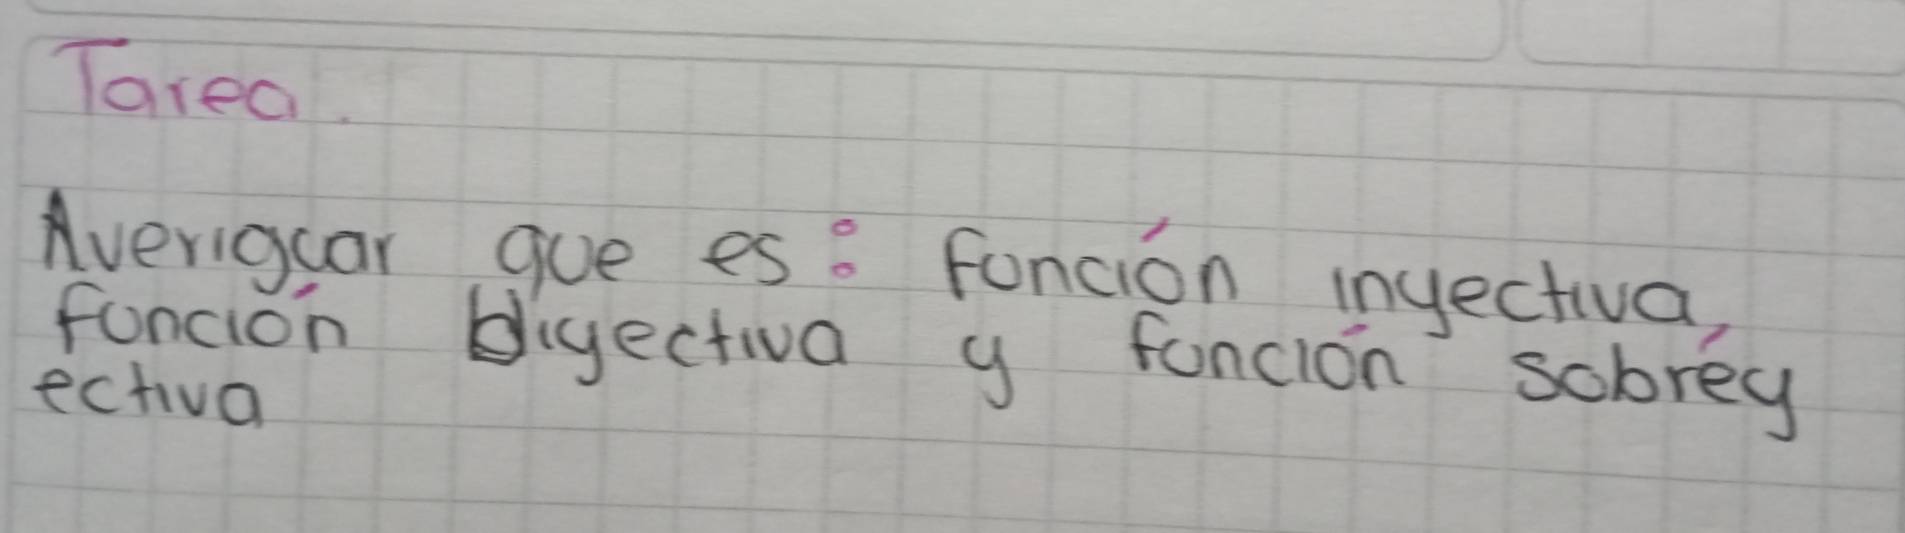 Tarea.
Averiguar que es: función inyectiva,
función biyectiva y función sobréy
ectiva